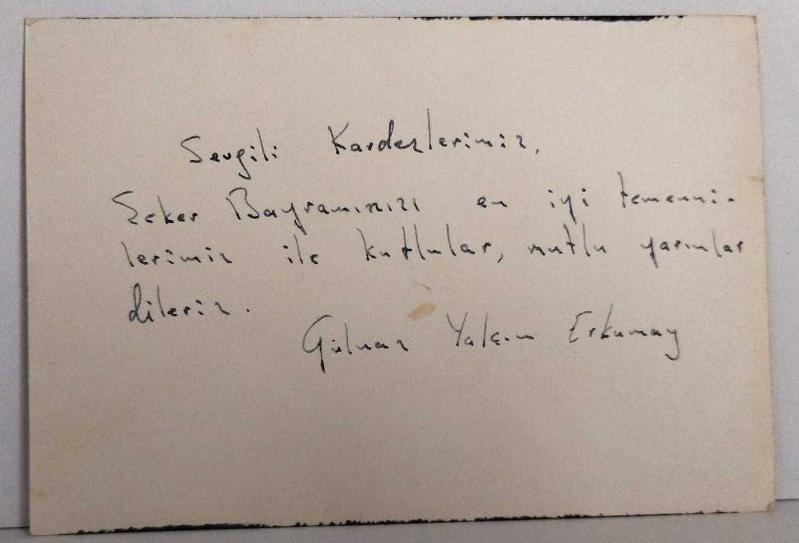 Sevgili Kardeşlerimiz,
Şeker Bayramınızı en iyi temenni-
lerimiz ile kutlular, mutlu yarınlar
dileriz.
Gülnaz Yalçın Erkunay